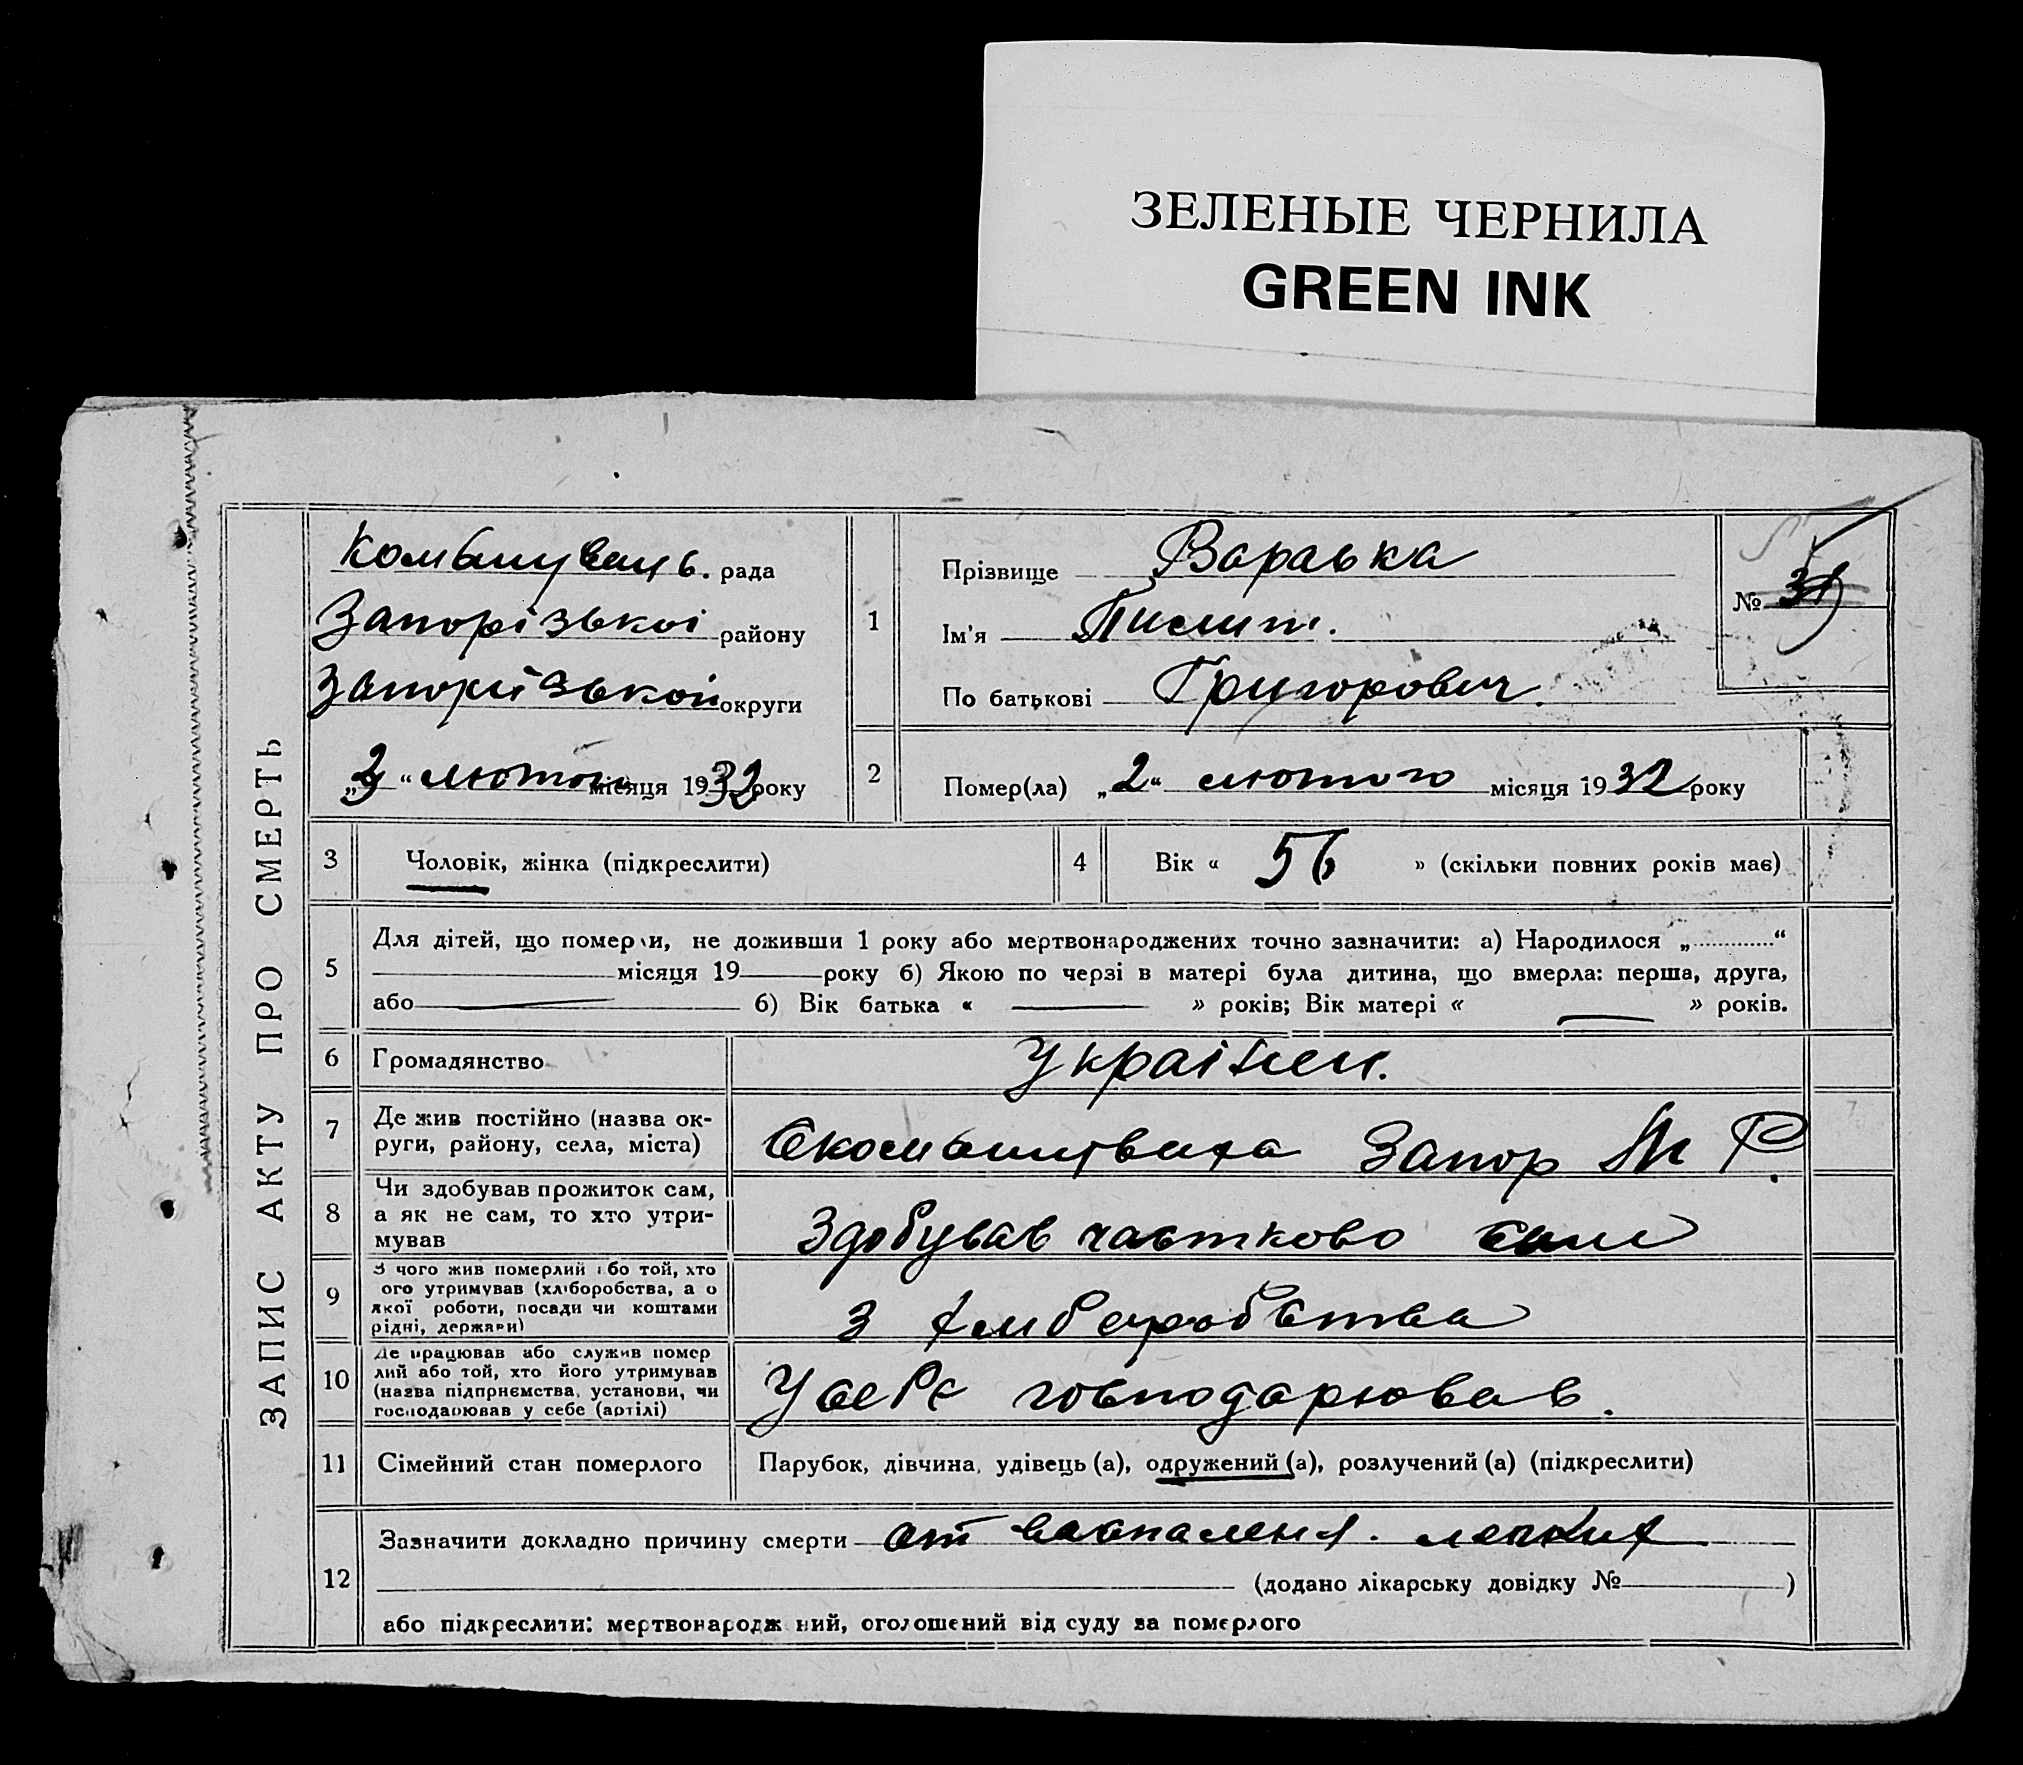 ЗЕЛЕНЫЕ ЧЕРНИЛА
GREEN INK
ЗАПИС АКТУ ПРО СМЕРТЬ
Комишуваць. рада
Запорізькоі району
Запорізькоі округи
„3“ лютого місяця 1932 року
1
Прізвище Варавка
Ім'я
По батькові Григорович.
№
2
Помер(ла) „2“ лютого місяця 1932 року
3
Чоловік, жінка (підкреслити)
4
Вік « 56 » (скільки повних років має)
5
Для дітей, що померли, не доживши 1 року або мертвонароджених точно зазначити: а) Народилося „ “
місяця 19 року б) Якою по черзі в матері була дитина, що вмерла: перша, друга,
або б) Вік батька « » років; Вік матері « » років.
6
Громадянство
Украінец.
7
Де жив постійно (назва ок-
руги, району, села, міста)
с Комишуваха Запор М Р.
8
Чи здобував прожиток сам,
а як не сам, то хто утри-
мував
Здобував частково сам
9
З чого жив померлий або той, хто
ого утримував (хліборобства, а о
якої роботи, посади чи коштами
рідні, держави)
З хлиборобства
10
Де працював або служив помер
лий або той, хто його утримував
(назва підприємства, установи, чи
господарював у себе (артілі)
У себе господарював.
11
Сімейний стан померлого
Парубок, дівчина, удівець (а), одружений (а), розлучений (а) (підкреслити)
12
Зазначити докладно причину смерти от воспаления легких
(додано лікарську довідку № )
або підкреслити: мертвонародж ний, оголошений від суду за померлого